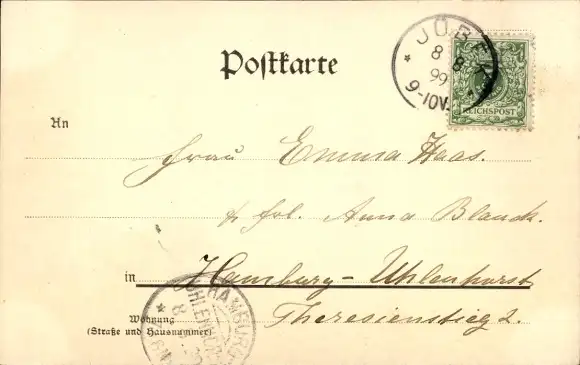 Postkarte
JÜBEK
8 8
99
9-10V.
REICHSPOST
An
Frau Emma Haas.
p. frl. Anna Blanck.
in Hamburg-Uhlenhorst
Theresienstieg 2.
Wohnung
(Straße und Hausnummer)
HAMBURG
UHLENHORST
8